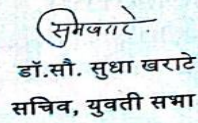 डॉ.सौ. सुधा खराटे
सचिव, युवती सभा